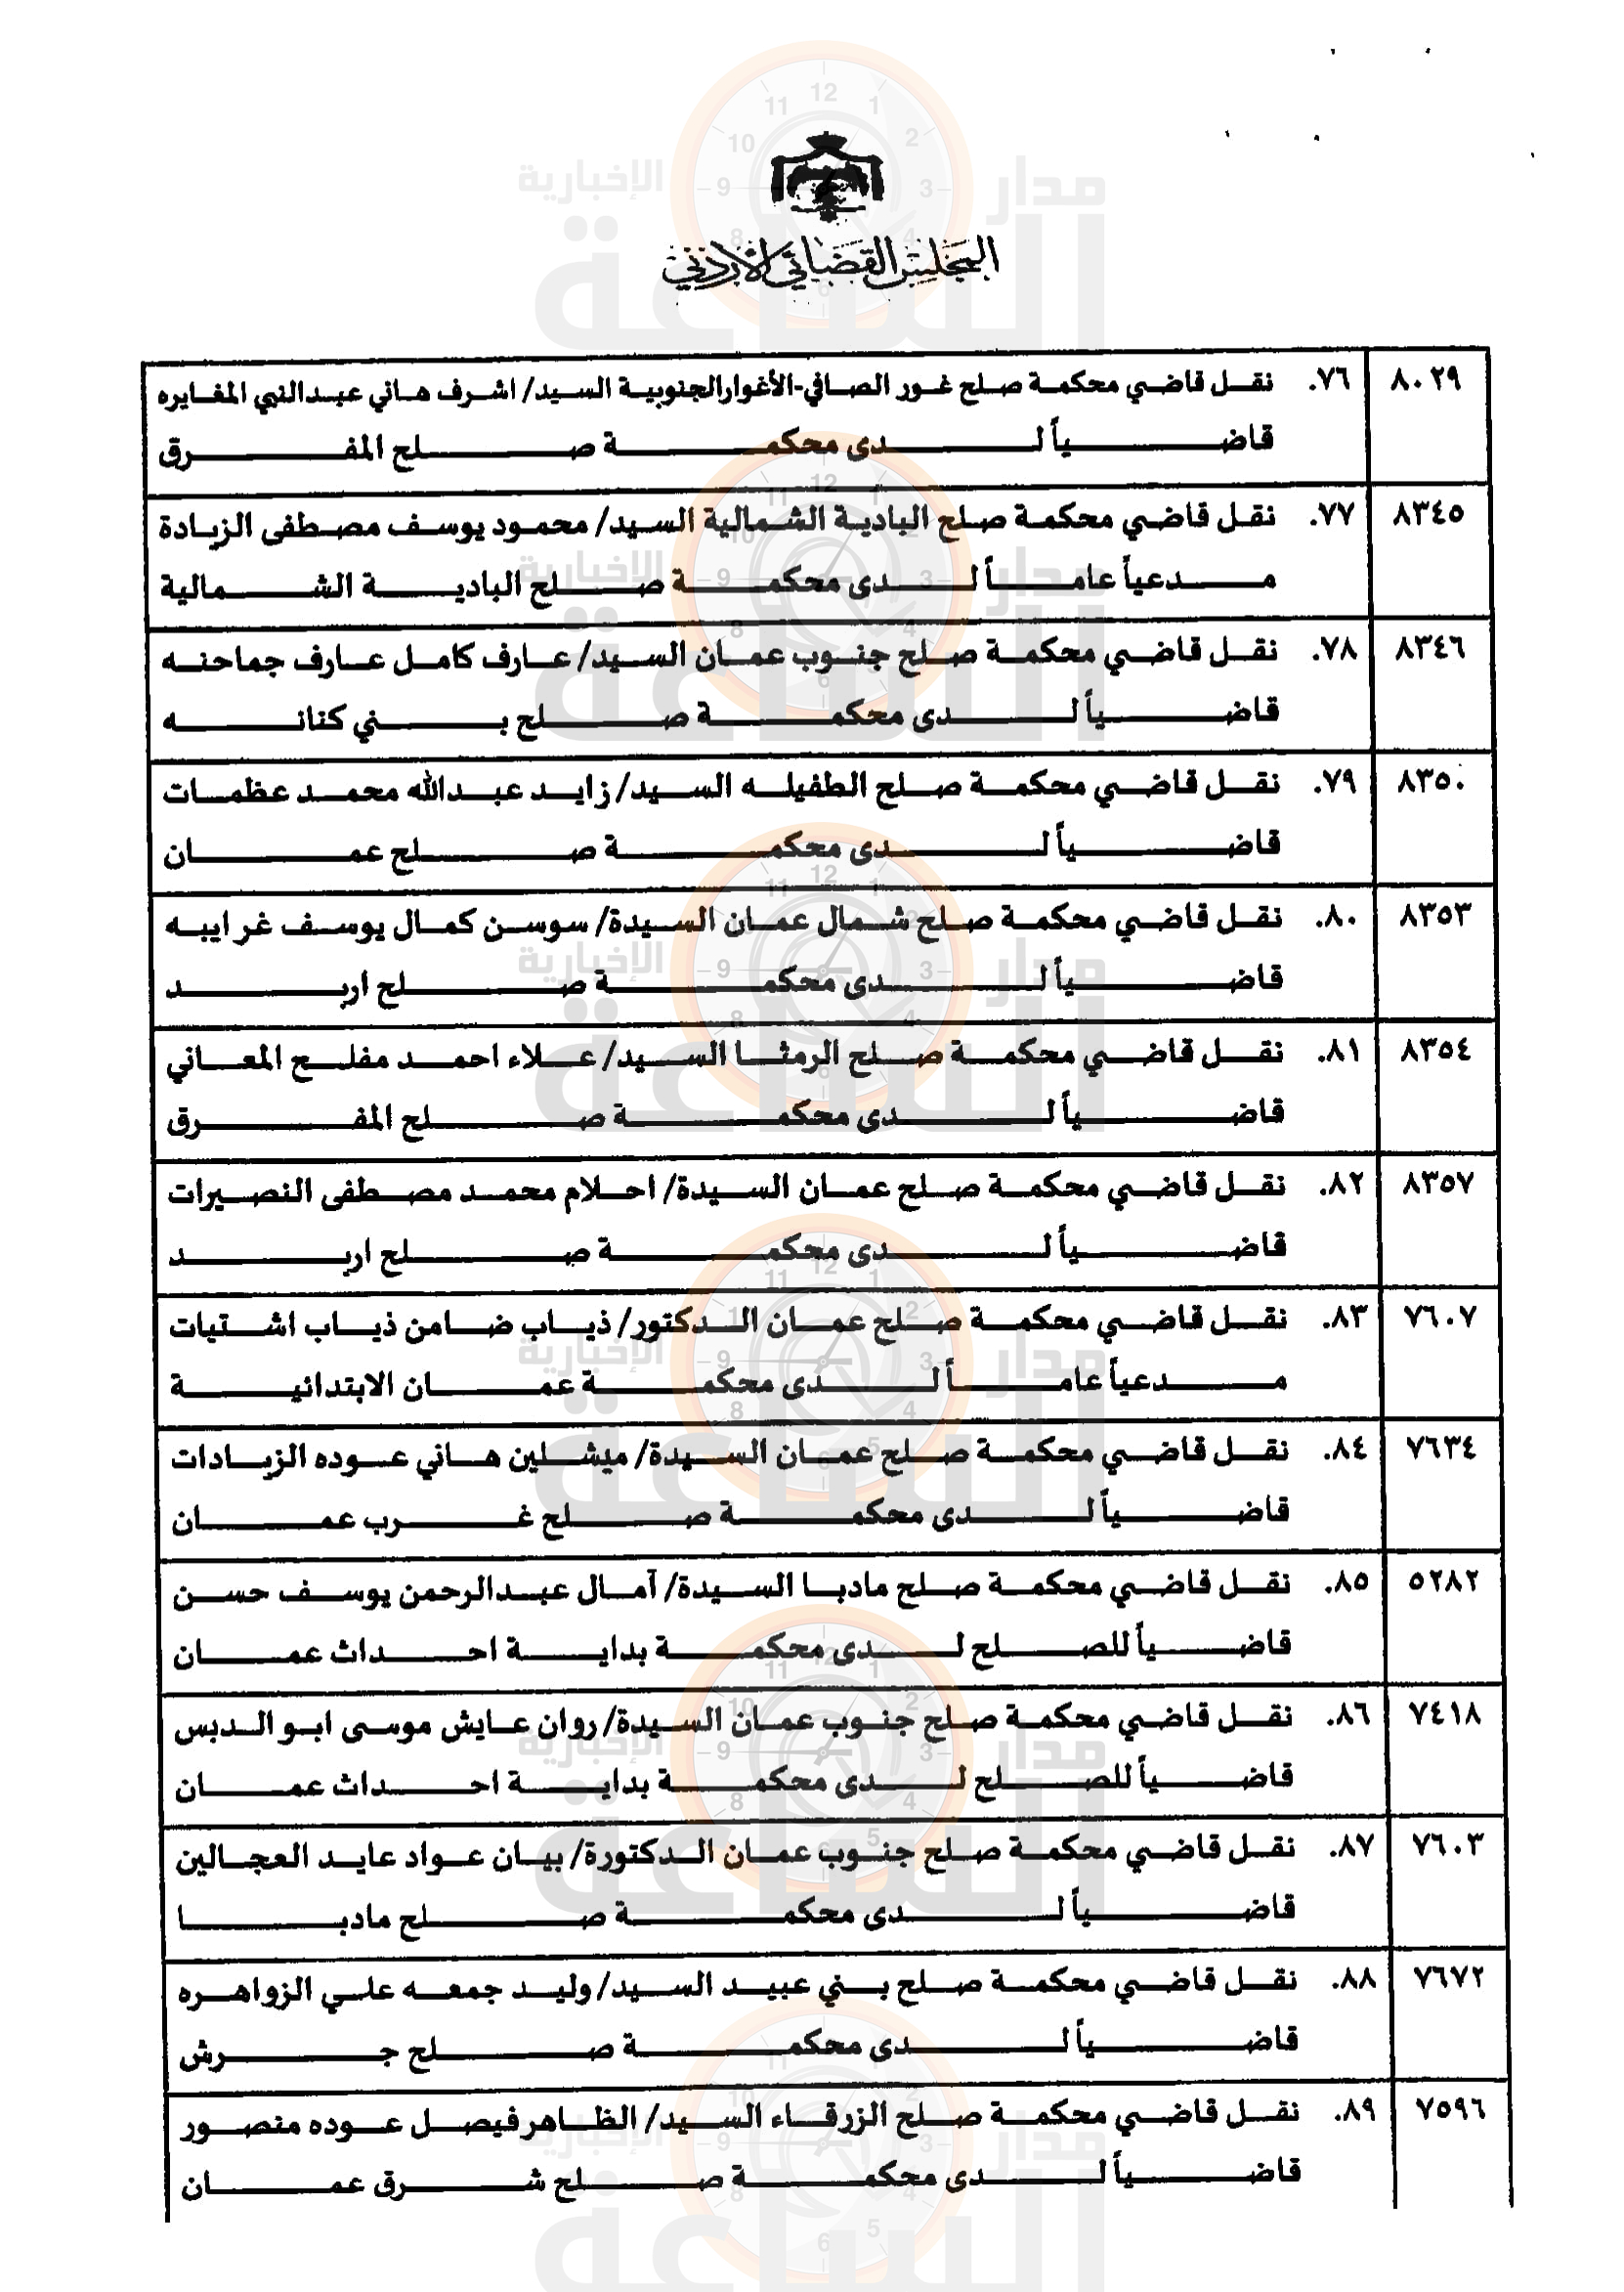 المجلس القضائي الأردني
٨٠٢٩ ٧٦. نقل قاضي محكمة صلح غور الصافي-الأغوارالجنوبية السيد/ اشرف هاني عبدالنبي المغايره
قاضياً لدى محكمة صلح المفرق
٨٣٤٥ ٧٧. نقل قاضي محكمة صلح البادية الشمالية السيد/ محمود يوسف مصطفى الزيادة
مدعياً عاماً لدى محكمة صلح البادية الشمالية
٨٣٤٦ ٧٨. نقل قاضي محكمة صلح جنوب عمان السيد/ عارف كامل عارف جماحنه
قاضياً لدى محكمة صلح بني كنانه
٨٣٥٠ ٧٩. نقل قاضي محكمة صلح الطفيله السيد/ زايد عبدالله محمد عظمات
قاضياً لدى محكمة صلح عمان
٨٣٥٣ ٨٠. نقل قاضي محكمة صلح شمال عمان السيدة/ سوسن كمال يوسف غرايبه
قاضياً لدى محكمة صلح اربد
٨٣٥٤ ٨١. نقل قاضي محكمة صلح الرمثا السيد/ علاء احمد مفلح المعاني
قاضياً لدى محكمة صلح المفرق
٨٣٥٧ ٨٢. نقل قاضي محكمة صلح عمان السيدة/ احلام محمد مصطفى النصيرات
قاضياً لدى محكمة صلح اربد
٧٦٠٧ ٨٣. نقل قاضي محكمة صلح عمان الدكتور/ ذياب ضامن ذياب اشتيات
مدعياً عاماً لدى محكمة عمان الابتدائية
٧٦٣٤ ٨٤. نقل قاضي محكمة صلح عمان السيدة/ ميشلين هاني عوده الزيادات
قاضياً لدى محكمة صلح غرب عمان
٥٢٨٢ ٨٥. نقل قاضي محكمة صلح مادبا السيدة/ آمال عبدالرحمن يوسف حسن
قاضياً للصلح لدى محكمة بداية احداث عمان
٧٤١٨ ٨٦. نقل قاضي محكمة صلح جنوب عمان السيدة/ روان عايش موسى ابو الدبس
قاضياً للصلح لدى محكمة بداية احداث عمان
٧٦٠٣ ٨٧. نقل قاضي محكمة صلح جنوب عمان الدكتورة/ بيان عواد عايد العجالين
قاضياً لدى محكمة صلح مادبا
٧٦٧٢ ٨٨. نقل قاضي محكمة صلح بني عبيد السيد/ وليد جمعه علي الزواهره
قاضياً لدى محكمة صلح جرش
٧٥٩٦ ٨٩. نقل قاضي محكمة صلح الزرقاء السيد/ الظاهر فيصل عوده منصور
قاضياً لدى محكمة صلح شرق عمان
مدار الساعة الإخبارية